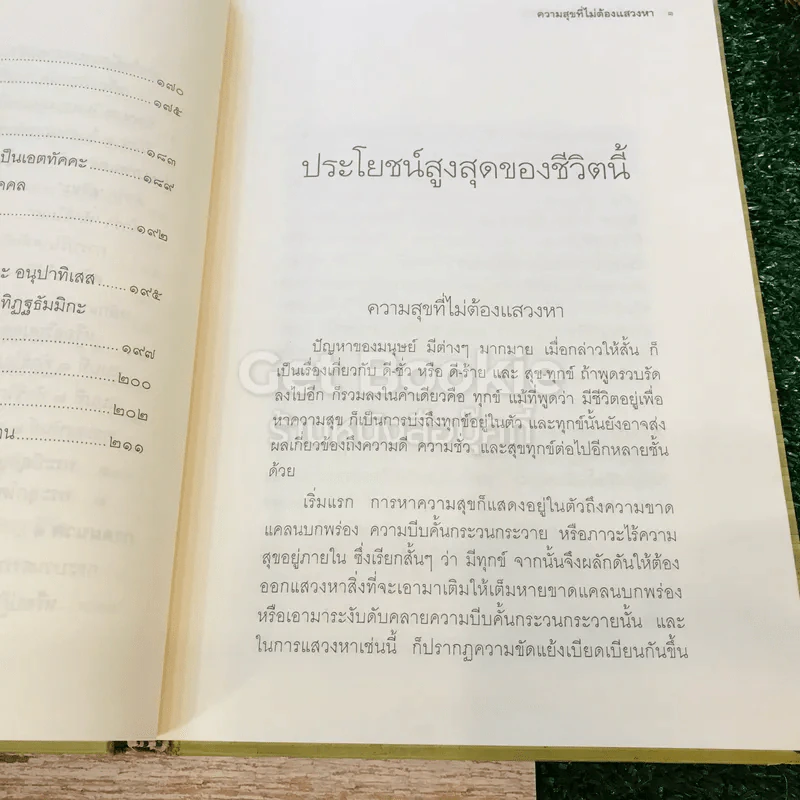 ๑๗๐
๑๗๕
๑๘๓
เป็นเอตทัคคะ
๑๘๙
คคล
๑๙๒
ะ อนุปาทิเสส ๑๙๕
ทิฏฐธัมมิกะ
๑๙๗
๒๐๐
๒๐๒
าน ๒๑๑
ความสุขที่ไม่ต้องแสวงหา
ประโยชน์สูงสุดของชีวิตนี้
ความสุขที่ไม่ต้องแสวงหา
ปัญหาของมนุษย์ มีต่างๆ มากมาย เมื่อกล่าวให้สั้น ก็
เป็นเรื่องเกี่ยวกับ ดี-ชั่ว หรือ ดี-ร้าย และ สุข-ทุกข์ ถ้าพูดรวบรัด
ลงไปอีก ก็รวมลงในคำเดียวคือ ทุกข์ แม้ที่พูดว่า มีชีวิตอยู่เพื่อ
หาความสุข ก็เป็นการบ่งถึงทุกข์อยู่ในตัว และทุกข์นั้นยังอาจส่ง
ผลเกี่ยวข้องถึงความดี ความชั่ว และสุขทุกข์ต่อไปอีกหลายชั้น
ด้วย
เริ่มแรก การหาความสุขก็แสดงอยู่ในตัวถึงความขาด
แคลนบกพร่อง ความบีบคั้นกระวนกระวาย หรือภาวะไร้ความ
สุขอยู่ภายใน ซึ่งเรียกสั้นๆ ว่า มีทุกข์ จากนั้นจึงผลักดันให้ต้อง
ออกแสวงหาสิ่งที่จะเอามาเติมให้เต็มหายขาดแคลนบกพร่อง
หรือเอามาระงับดับคลายความบีบคั้นกระวนกระวายนั้น และ
ในการแสวงหาเช่นนี้ ก็ปรากฏความขัดแย้งเบียดเบียนกันขึ้น
Get Bookie
ร้านหนังสือผู้ดี